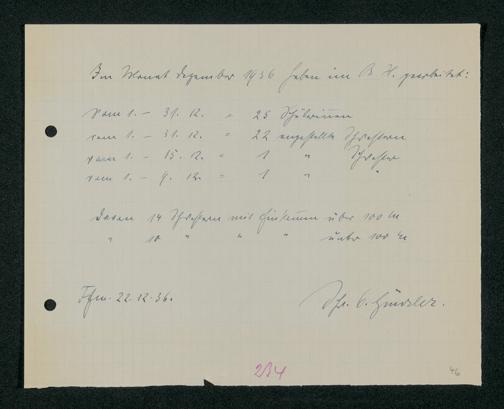 Im Monat Dezember 1936 haben im B. H. gearbeitet:
vom 1. – 31. 12. = 25 Schülerinnen
vom 1. – 31. 12. = 22 angestellte Schwestern
vom 1. – 15. 12. = 1 " Schwester
vom 1. – 9. 12. = 1 " "
Davon 14 Schwestern mit Einkommen über 100 M
" 10 " " " unter 100 M
Ffm. 22.12.36.
Schw.
234
46